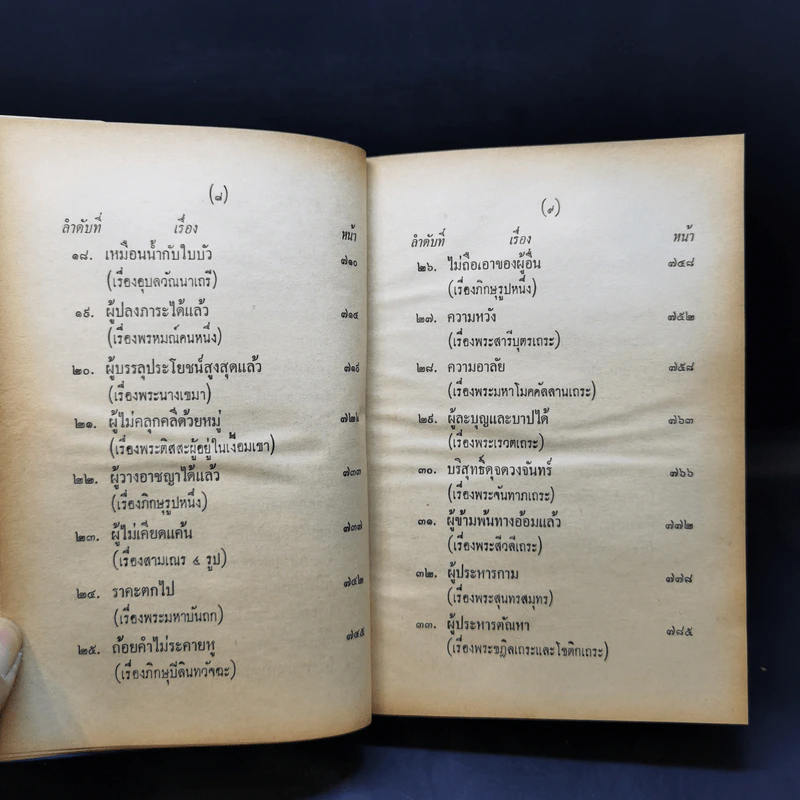 (๘)
ลำดับที่ เรื่อง หน้า
๑๘. เหมือนน้ำกับใบบัว ๗๑๐
(เรื่องอุบลวัณณาเถรี)
๑๙. ผู้ปลงภาระได้แล้ว ๗๑๔
(เรื่องพรหมณ์คนหนึ่ง)
๒๐. ผู้บรรลุประโยชน์สูงสุดแล้ว ๗๑๙
(เรื่องพระนางเขมา)
๒๑. ผู้ไม่คลุกคลีด้วยหมู่
(เรื่องพระติสสะผู้อยู่ในเงื้อมเขา)
๒๒. ผู้วางอาชญาได้แล้ว ๗๓๓
(เรื่องภิกษุรูปหนึ่ง)
๒๓. ผู้ไม่เคียดแค้น ๗๓๗
(เรื่องสามเณร ๔ รูป)
๒๔. ราคะตกไป ๗๔๒
(เรื่องพระมหาบันถก)
๒๕. ถ้อยคำไม่ระคายหู ๗๔๕
(เรื่องภิกษุปิลินทวัจฉะ)
(๙)
ลำดับที่ เรื่อง หน้า
๒๖. ไม่ถือเอาของผู้อื่น ๗๔๘
(เรื่องภิกษุรูปหนึ่ง)
๒๗. ความหวัง ๗๕๒
(เรื่องพระสารีบุตรเถระ)
๒๘. ความอาลัย ๗๕๘
(เรื่องพระมหาโมคคัลลานเถระ)
๒๙. ผู้ละบุญและบาปได้ ๗๖๓
(เรื่องพระเรวตเถระ)
๓๐. บริสุทธิ์ดุจดวงจันทร์ ๗๖๖
(เรื่องพระจันทาภเถระ)
๓๑. ผู้ข้ามพ้นทางอ้อมแล้ว ๗๗๒
(เรื่องพระสีวลีเถระ)
๓๒. ผู้ประหารกาม ๗๗๘
(เรื่องพระสุนทรสมุทร)
๓๓. ผู้ประหารตัณหา ๗๘๕
(เรื่องพระชฎิลเถระและโชติกเถระ)